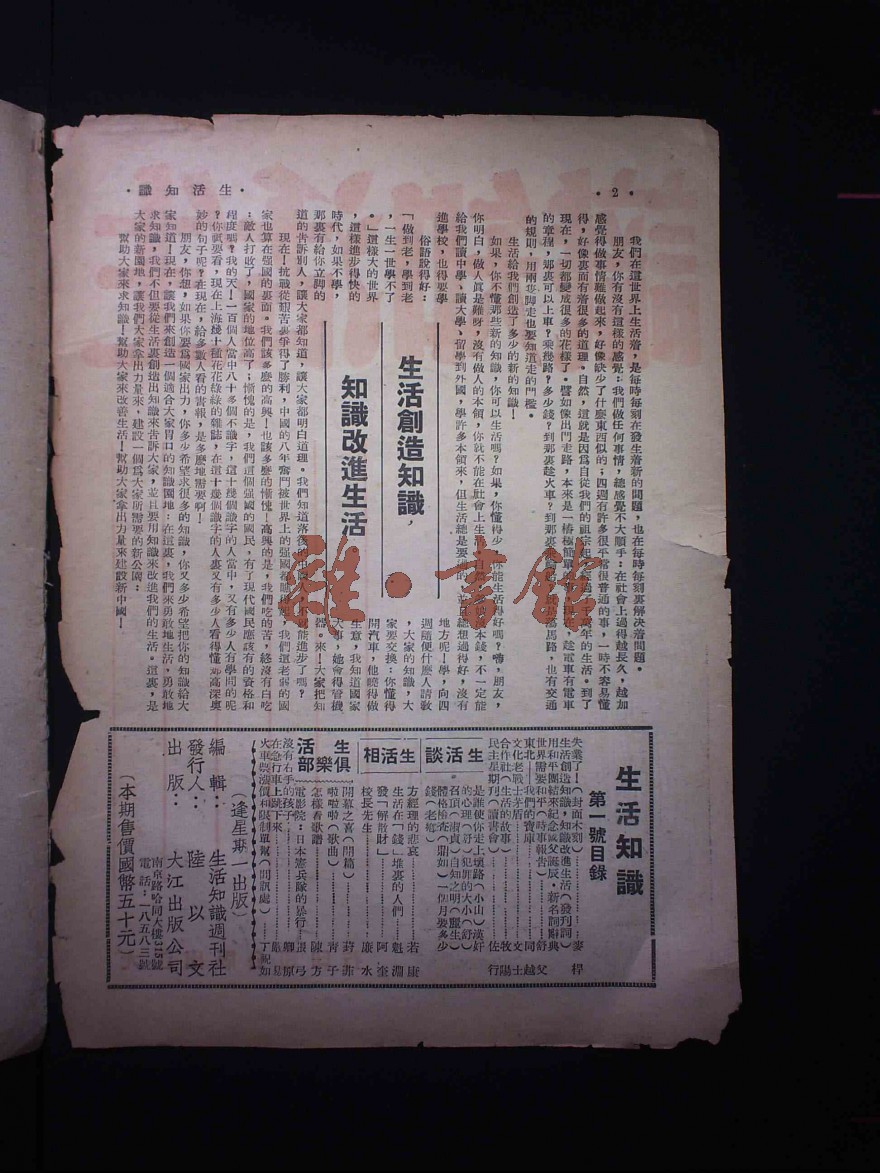 •2•
生活知識
我們在這世界上生活着，是每時每刻在發生着新的問題，也在每時每刻裏解決着問題。
朋友，你有沒有這樣的感覺：我們做任何事情，總感覺不大順手：在社會上過得越長久，越加
感覺得做事情難做起來，好像缺少了什麼東西似的；四週有許多很平常很普通的事，一時不容易懂
得，好像裏面有着很多的道理。自然，這就是因爲自從我們的祖宗起
年的生活。到了
現在，一切都變成很多的花樣了。譬如像出門走路，本來是一樁極簡單
趁電車有電車
的章程，那裏可以上車？乘幾路？多少錢？到那裏趁火車？到那裏
馬路，也有交通
的規則，用兩隻脚走也要知道走的門檻。
生活給我們創造了多少的新的知識！
如果，你不懂那些新的知識，你可以生活嗎？如果，你懂得少
你能生活得好嗎？嘮，朋友，
你明白，做人眞是難呀，沒有做人的本領，你就不能在社會上生
本錢，不一定能
給我們讀中學、讀大學、留學到外國，學許多本領來，但生活總是要
想過得好，沒有
進學校，也得要學
俗語說得好：
「做到老，學到老
，一生一世學不了
。」這樣大的世界
，這樣進步得快的
時代，如果不學，
那裏有給你立脚的
生活創造知識，
知識改進生活。
地方呢！學，向四
週隨便什麼人請敎
，大家的知識，大
家要交換：你懂得
開汽車，他曉得做
生意，我知道國家
大事，她會得管機
器。來！大家把知
道的告訴別人，讓大家都知道，讓大家都明白道理。我們知道落後的中國人
能進步了嗎？
現在！抗戰從艱苦裏爭得了勝利，中國的八年奮鬥被世界上的强國都聽得
我們這老弱的國
家也算在强國的裏面。我們該多麼的高興！也該多麼的慚愧！高興的是，我們吃的苦，終沒有白吃
：敵人打敗了，國家的地位高了；慚愧的是，我們這個强國的國民，有了現代國民應該有的資格和
程度嗎？我的天！一百個人當中八十多個不識字，這十幾個識字的人當中，又有多少人有學問的呢
？你就要看，現在上海幾十種花花綠綠的雜誌，在這十幾個識字的人裏又有多少人看得懂那高深奧
妙的句子呢？在現在，給多數人看的書報，是多麼地需要啊！
朋友，你想，如果你要爲國家出力，你多少希望求很多的知識，你又多少希望把你的知識給大
家知道！現在，讓我們來創造一個適合大家胃口的知識園地：在這裏，我們來勇敢地生活，勇敢地
求知識，我們不但要從生活裏創造出知識來告訴大家，並且要用知識來改進我們的生活。這裏，是
大家的新園地，讓我們大家拿出力量來，建設一個爲大家所需要的新公園：
幫助大家來求知識！幫助大家來改善生活！幫助大家拿出力量來建設新中國！
雅·書館
生活知識
第一號目錄
失業了！（封面木刻）
麥桿
生活創造知識，知識改進生活（發刊詞）
用和平團結來紀念國父誕辰·新名詞辭典
世界需要和平（時事報告）
舒父
東北——我們的寶庫
同越
文化老戰士茅盾
文士
合作社（生活的故事）
牧陽
民主星期刊（讀書會）
佐行
生活談
是誰使你能上壞路（小山）漢奸
的心理（舒）犯罪的大小（舒）
召頂（淑貞）自知之明（靈生）
體格檢查（鼎如）一個月要多少
錢（老爺）
生活相
方經理的悲哀
若康
生活在「錢」堆裏的人們
魁淵
發「解散財」
阿奎
校長先生
廉水
生活俱樂部
開幕之喜（開篇）
莳菲
啦啦啦（歌曲）
靑子
怎樣看歌譜
陳方
電影院：日本憲兵隊的暴行
張弓
沒有右手的孩子
卿原
在急行車上跳下來
火車票漲價和限制單幫（問訊處）
丁祝如
（逢星期一出版）
編輯：生活知識週刊社
發行人：陸以文
出版：大江出版公司
南京路哈同大樓315號
電話：一八五八三號
（本期售價國幣五十元）